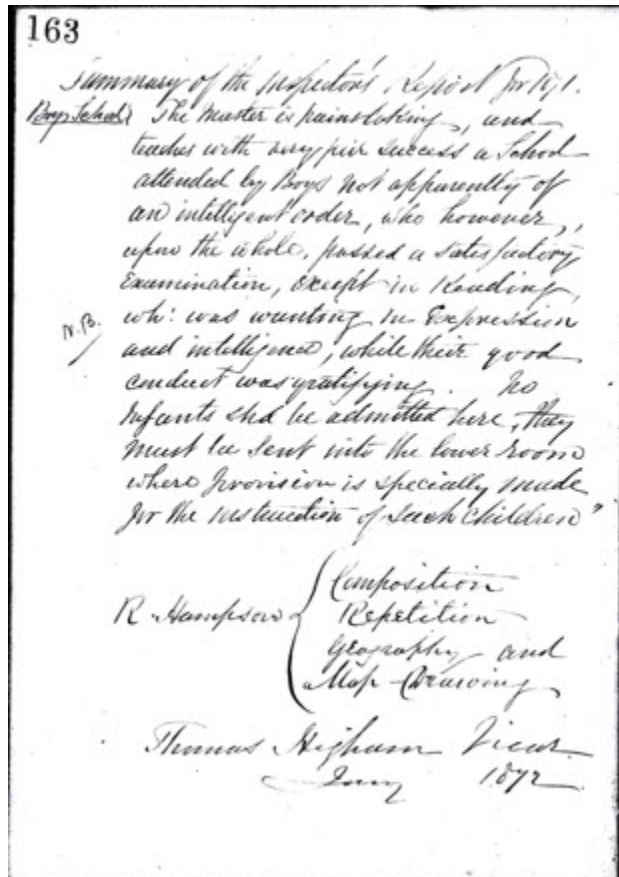 163
Summary of the Inspector's Report for 1871.
Boys School The Master is painstaking, and
teaches with very fair success a School
attended by Boys not apparently of
an intelligent order, who however,
upon the whole, passed a satisfactory
Examination, except in Reading,
N.B. wh: was wanting in Expression
and intelligence, while their good
conduct was gratifying. No
Infants shd be admitted here, they
must be sent into the lower room
where provision is specially made
for the instruction of such children"
R. Hampson { Composition
Repetition
Geography and
Map Drawing
Thomas Higham Vicar
1872